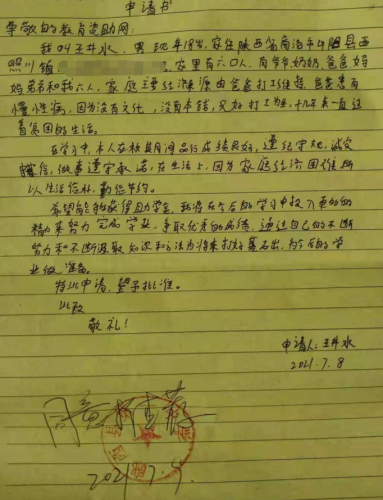 申请书
尊敬的教育资助网:
我叫王井水,男,现年18岁,家住陕西省商洛市丹凤县西
照川镇 家里有六口人,有爷爷奶奶爸爸妈
妈弟弟和我六人,家庭主经济来源由爸爸打工维持,爸爸患有
慢性病,因为没有文化,没有本钱,只好打工为生,十几年来一直过
着贫困的生活。
在学习中,本人在校期间品行成绩良好,遵纪守规,诚实
守信,做事遵守承诺,在生活上,因为家庭经济困难所
以生活俭朴,勤俭节约。
希望能够获得助学金,我将在今后的学习中投入更多的
精力来努力完成学业,争取优秀的成绩,通过自己的不断
努力和不断汲取知识和方法为将来打好基石出,为今后的学
业做准备。
特此申请,望予批准。
此致
敬礼!
申请人:王井水
2021.7.8
同意
2021.7.